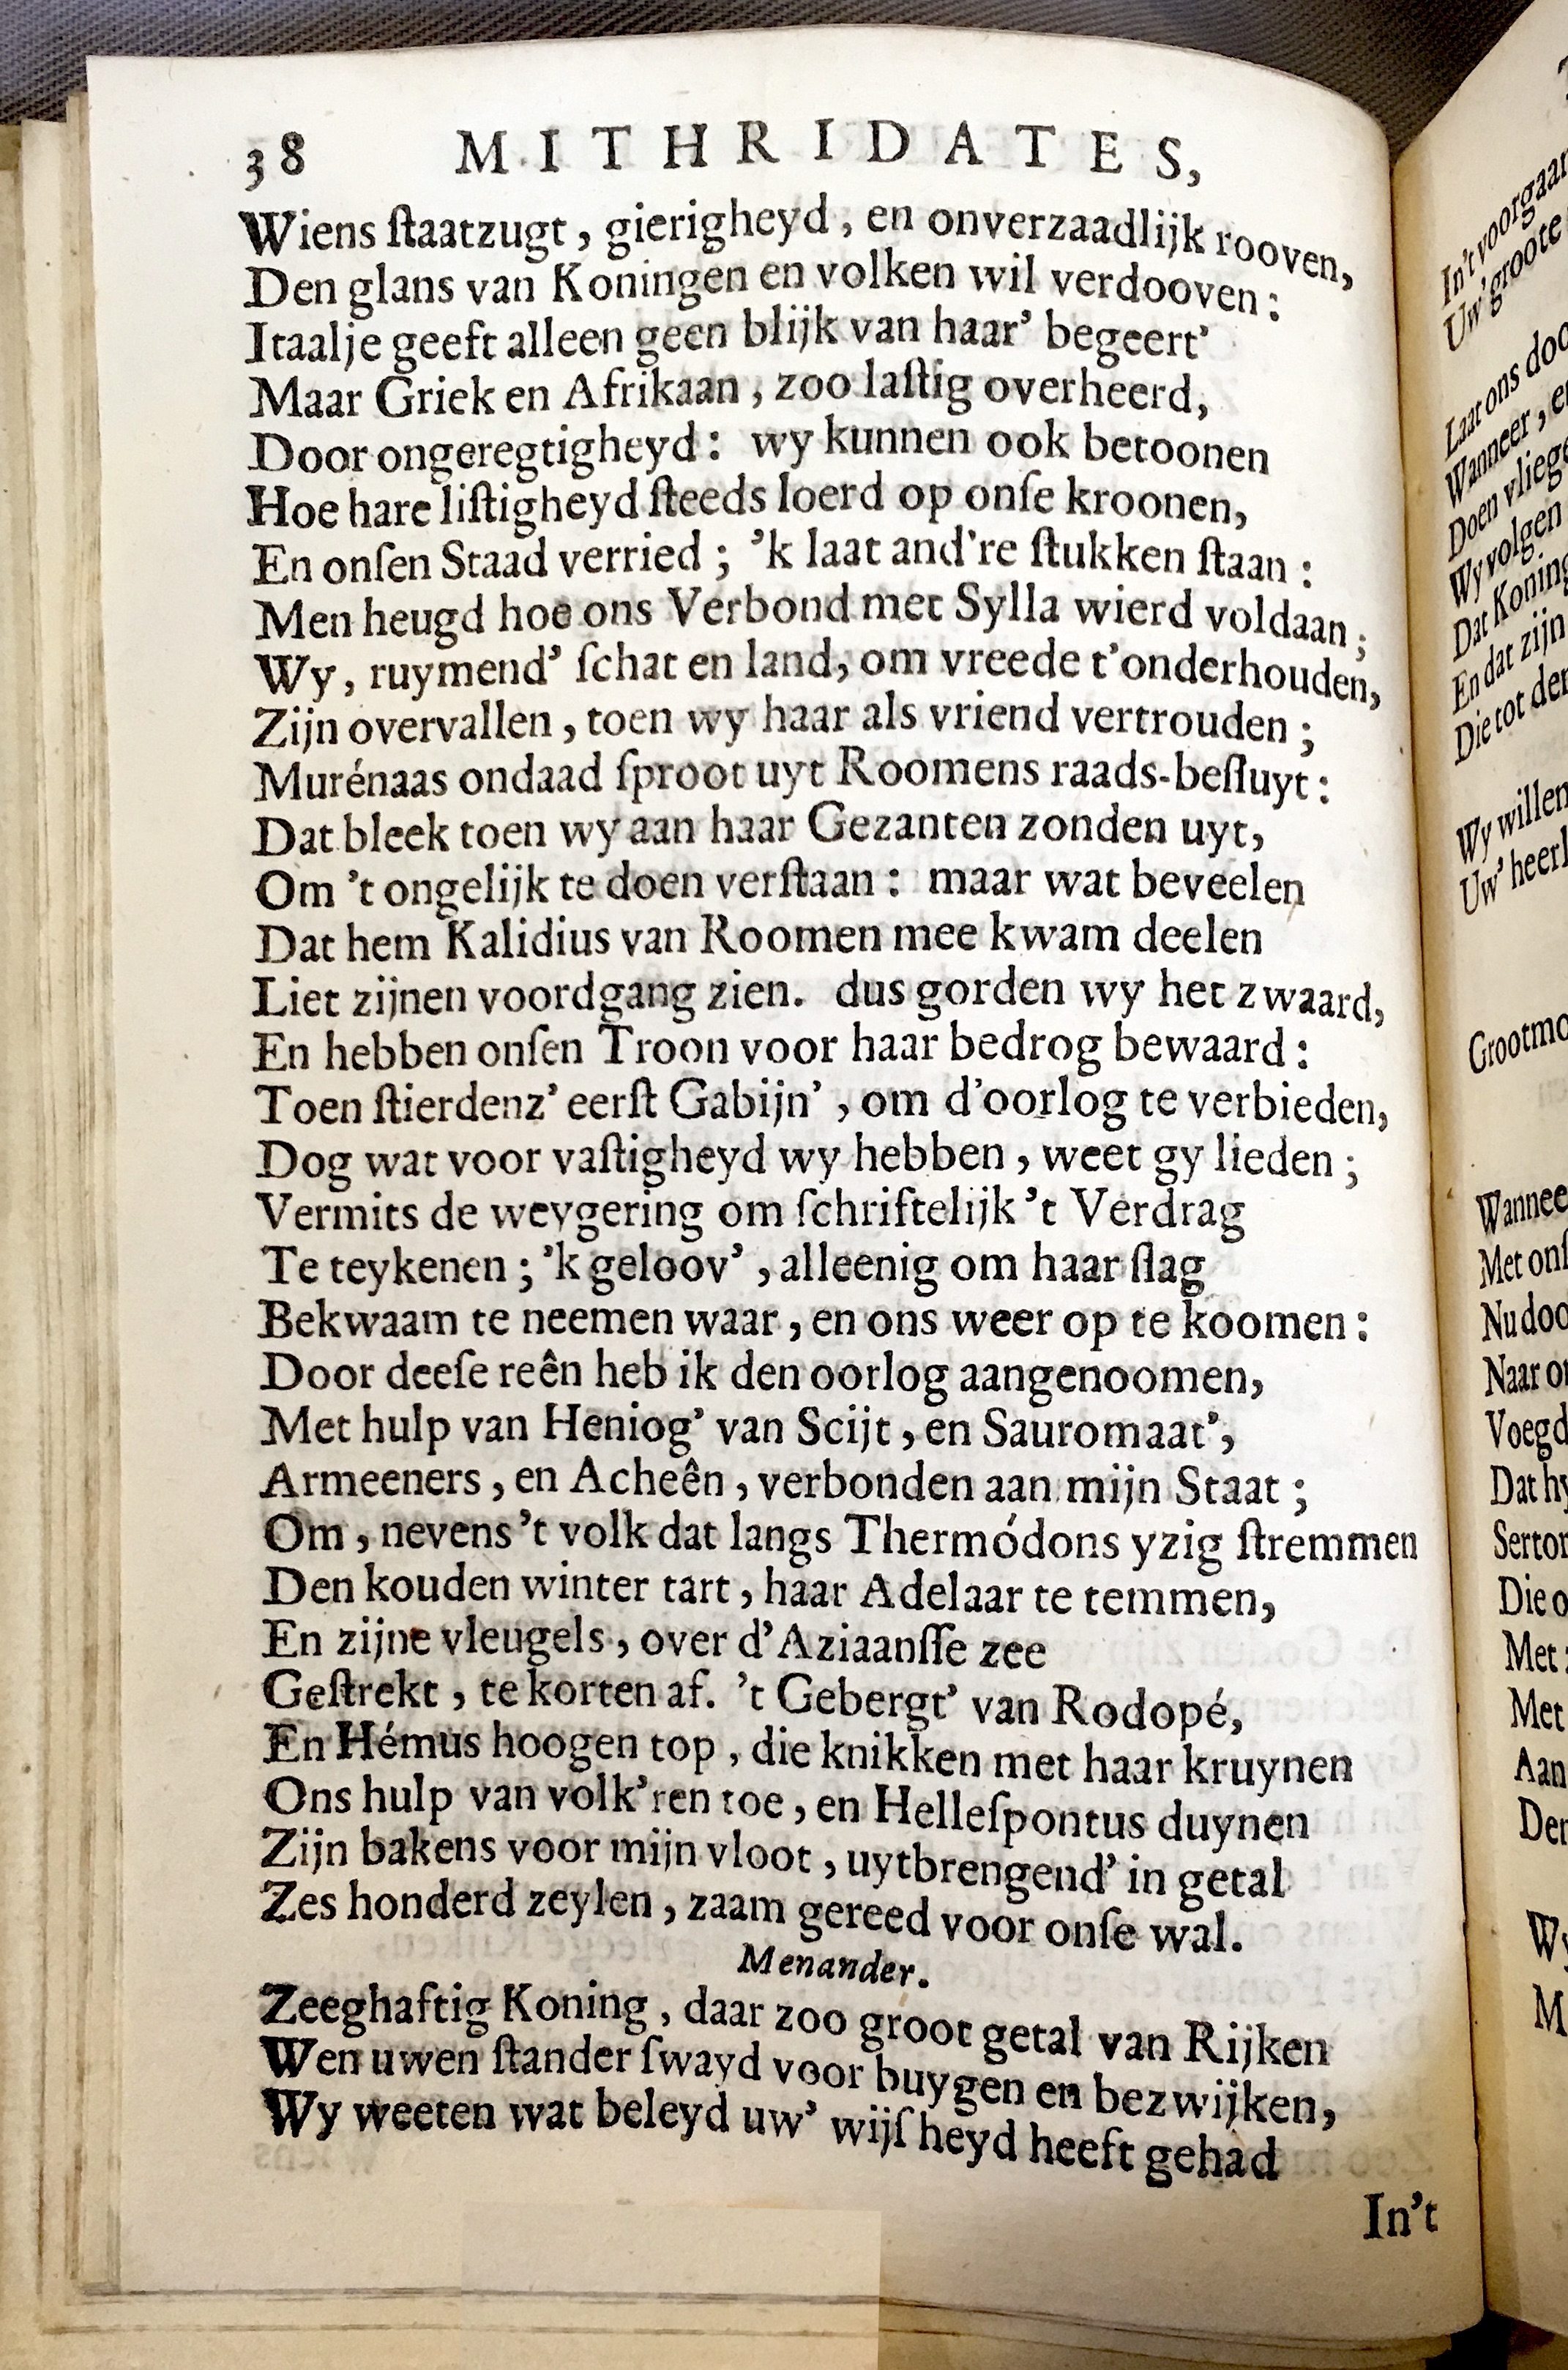 38 MITHRIDATES,
Wiens ſtaatzugt, gierigheyd, en onverzaadlijk rooven,
Den glans van Koningen en volken wil verdooven:
Itaalje geeft alleen geen blijk van haar' begeert'
Maar Griek en Afrikaan, zoo laſtig overheerd,
Door ongeregtigheyd: wy kunnen ook betoonen
Hoe hare liſtigheyd ſteeds loerd op onſe kroonen,
En onſen Staad verried; 'k laat and're ſtukken ſtaan:
Men heugd hoe ons Verbond met Sylla wierd voldaan;
Wy, ruymend' ſchat en land, om vreede t'onderhouden,
Zijn overvallen, toen wy haar als vriend vertrouden;
Murénaas ondaad ſproot uyt Roomens raads-beſluyt:
Dat bleek toen wy aan haar Gezanten zonden uyt,
Om 't ongelijk te doen verſtaan: maar wat beveelen
Dat hem Kalidius van Roomen mee kwam deelen
Liet zijnen voordgang zien. dus gorden wy het zwaard,
En hebben onſen Troon voor haar bedrog bewaard:
Toen ſtierdenz' eerſt Gabijn', om d'oorlog te verbieden,
Dog wat voor vaſtigheyd wy hebben, weet gy lieden;
Vermits de weygering om ſchriftelijk 't Verdrag
Te teykenen; 'k geloov', alleenig om haar ſlag
Bekwaam te neemen waar, en ons weer op te koomen:
Door deeſe reên heb ik den oorlog aangenoomen,
Met hulp van Heniog' van Scijt, en Sauromaat',
Armeeners, en Acheên, verbonden aan mijn Staat;
Om, nevens 't volk dat langs Thermódons yzig ſtremmen
Den kouden winter tart, haar Adelaar te temmen,
En zijne vleugels, over d'Aziaanſſe zee
Geſtrekt, te korten af. 't Gebergt' van Rodopé,
En Hémus hoogen top, die knikken met haar kruynen
Ons hulp van volk'ren toe, en Helleſpontus duynen
Zijn bakens voor mijn vloot, uytbrengend' in getal
Zes honderd zeylen, zaam gereed voor onſe wal.
Menander.
Zeeghaftig Koning, daar zoo groot getal van Rijken
Wen uwen ſtander ſwayd voor buygen en bezwijken,
Wy weeten wat beleyd uw' wijſheyd heeft gehad
In't
In't voorgaan
Uw' groote
Laat ons doo
Wanneer, e
Doen vliege
Wy volgen
Dat Koning
En dat zijn
Die tot der
Wy willen
Uw' heerl
Grootmo
Wannee
Met onſ
Nu doo
Naar o
Voegd
Dat hy
Sertor
Die o
Met
Met
Aan
Der
Wy
M